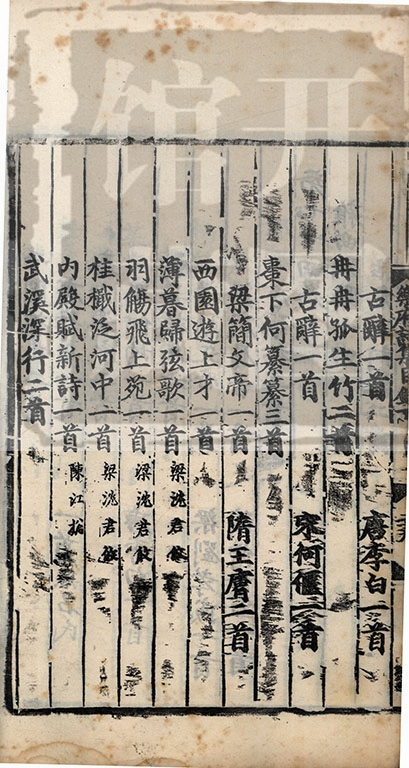 古辭一首 唐李白一首
冉冉孤生竹二首
古辭一首 宋何偃一首
棗下何纂纂三首
梁簡文帝一首 隋王胄二首
西園遊上才一首
薄暮動弦歌一首 梁沈君攸
羽觴飛上苑一首 梁沈君攸
桂檝泛河中一首 梁沈君攸
內殿賦新詩一首 陳江總
武溪深行二首
开
馆